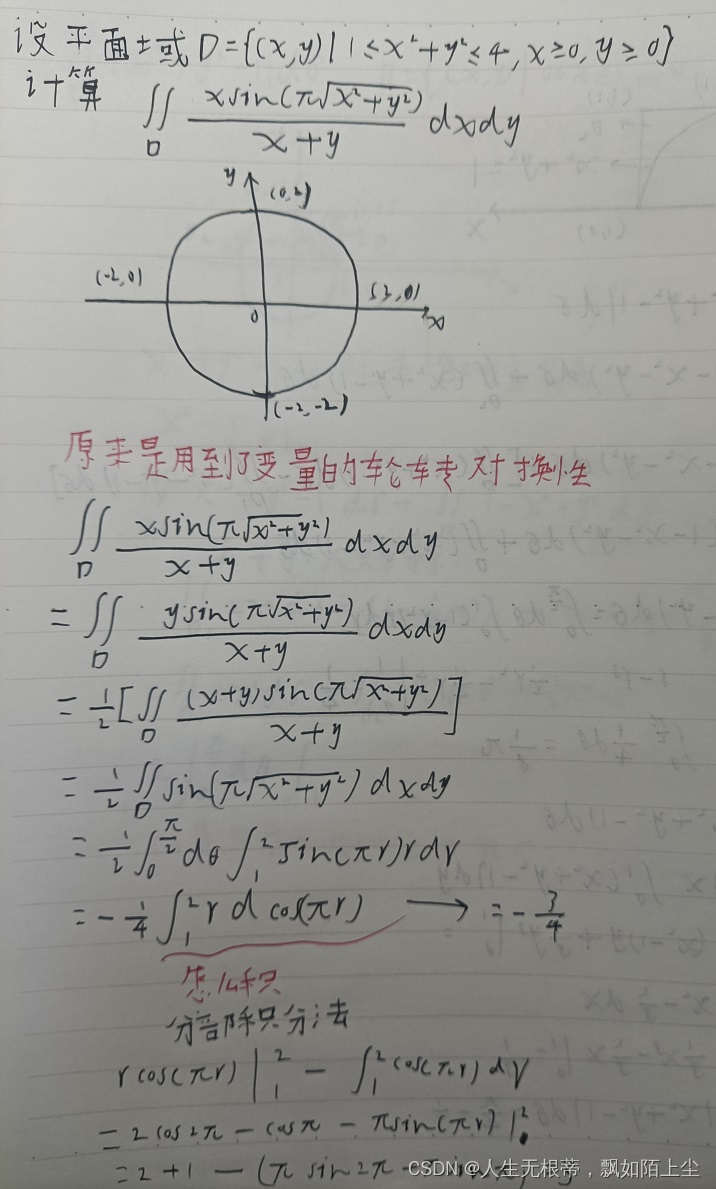 设平面域D={(x,y)|1≤x²+y²≤4,x≥0,y≥0}
计算 ∬_D xsin(π√(x²+y²))/(x+y) dxdy
y (0,2)
(-2,0) (2,0)
0 x
(-2,-2)
原来是用到了变量的轮转对换性
∬_D xsin(π√(x²+y²))/(x+y) dxdy
=∬_D ysin(π√(x²+y²))/(x+y) dxdy
=1/2[∬_D (x+y)sin(π√(x²+y²))/(x+y)]
=1/2∬_D sin(π√(x²+y²)) dxdy
=1/2∫_0^(π/2) dθ∫_1^2 sin(πr)rdr
=-1/4∫_1^2 r d cos(πr) → =-3/4
怎么积
分部积分法
rcos(πr)|_1^2 - ∫_1^2 cos(πr)dr
=2cos2π-cosπ-πsin(πr)|_1^2
=2+1-(πsin2π-
CSDN @人生无根蒂，飘如陌上尘